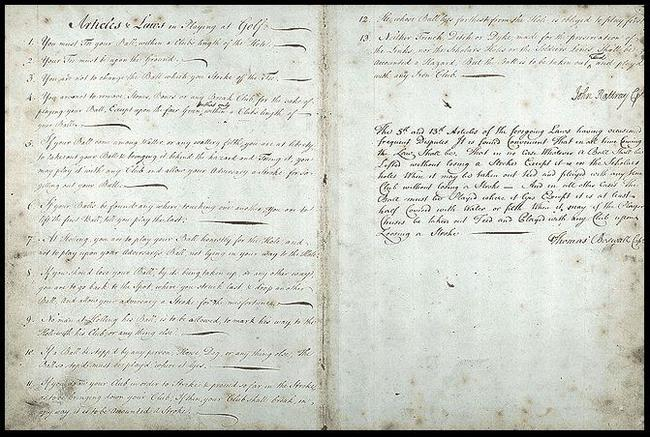 Articles & Laws in Playing at Golf.
1. You must Tee your Ball, within a Clubs length of the Hole.
2. Your Tee must be upon the Ground.
3. You are not to change the Ball which you Stroke off the Tee.
4. You are not to remove Stones, Bones or any Break Club, for the sake of
playing your Ball, Except upon the fair Green, & that only within a Clubs length of
your Ball.
5. If your Ball come among Water, or any watery filth, you are at liberty
to take out your Ball & bringing it behind the hazard and Teeing it, you
may play it with any Club and allow your Adversary a Stroke for so
getting out your Ball.
6. If your Balls be found any where touching one another, You are to
lift the first Ball, till you play the last.
7. At Holling, you are to play your Ball honestly for the Hole, and
not to play upon your Adversary's Ball, not lying in your way to the Hole.
8. If you should lose your Ball, by its being taken up, or any other way,
you are to go back to the Spot, where you struck last & drop another
Ball, And allow your adversary a Stroke for the misfortune.
9. No man at Holling his Ball, is to be allowed, to mark his way to the
Hole with his Club or any thing else.
10. If a Ball be stopp'd by any person, Horse, Dog, or any thing else, The
Ball so stop'd must be play'd where it lyes.
11. If you draw your Club, in order to Stroke & proceed so far in the Stroke,
as to be bringing down your Club; If then, your Club shall break, in
any way, it is to be Accounted a Stroke.
12. He, whose Ball lyes farthest from the Hole is obliged to play first.
13. Neither Trench, Ditch or Dyke, made for the preservation of
the Links, nor the Scholar's Holes or the Soldier's Lines, Shall be
accounted a Hazard, But the Ball is to be taken out, Teed and play'd
with any Iron Club.
John Rattray Cpt
The 5th and 13th Articles of the foregoing Laws having occasioned
frequent Disputes It is found Convenient That in all time Coming
the Law Shall be, That in no Case Whatever a Ball Shall be
Lifted without losing a Stroke Except it is in the Scholars
holes When it may be taken out teed and played with any Iron
Club without losing a Stroke — And in all other Cases the
Ball must be Played where it lyes Except it is at least
half Covered with Water or filth When it may if the Player
Chuses be taken out Teed and Played with any Club upon
Loosing a Stroke
Thomas Boswall Cpt